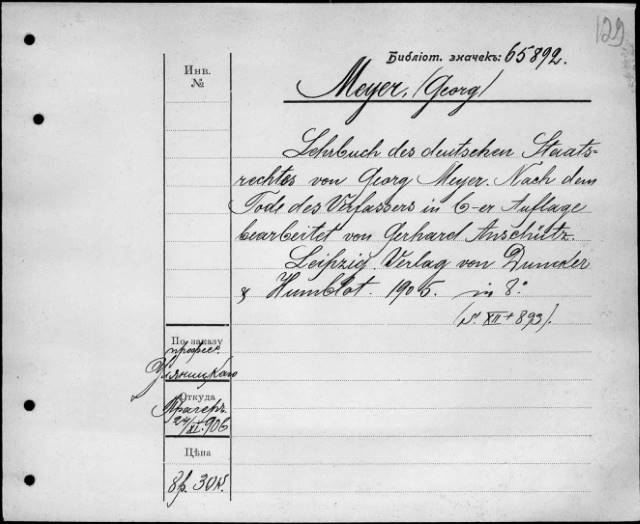 129
Библіот. значекъ: 65892.
Инв.
№
Meyer, (Georg)
Lehrbuch des deutschen Staats-
rechtes von Georg Meyer. Nach dem
Tode des Verfassers in 6-er Auflage
bearbeitet von Gerhard Anschütz.
Leipzig. Verlag von Duncker
& Humblot. 1905. in 8°.
(S. XII + 893).
По заказу
професс.
Откуда
Прагеръ.
24/XI. 906
Цѣна
8 р. 30 к.